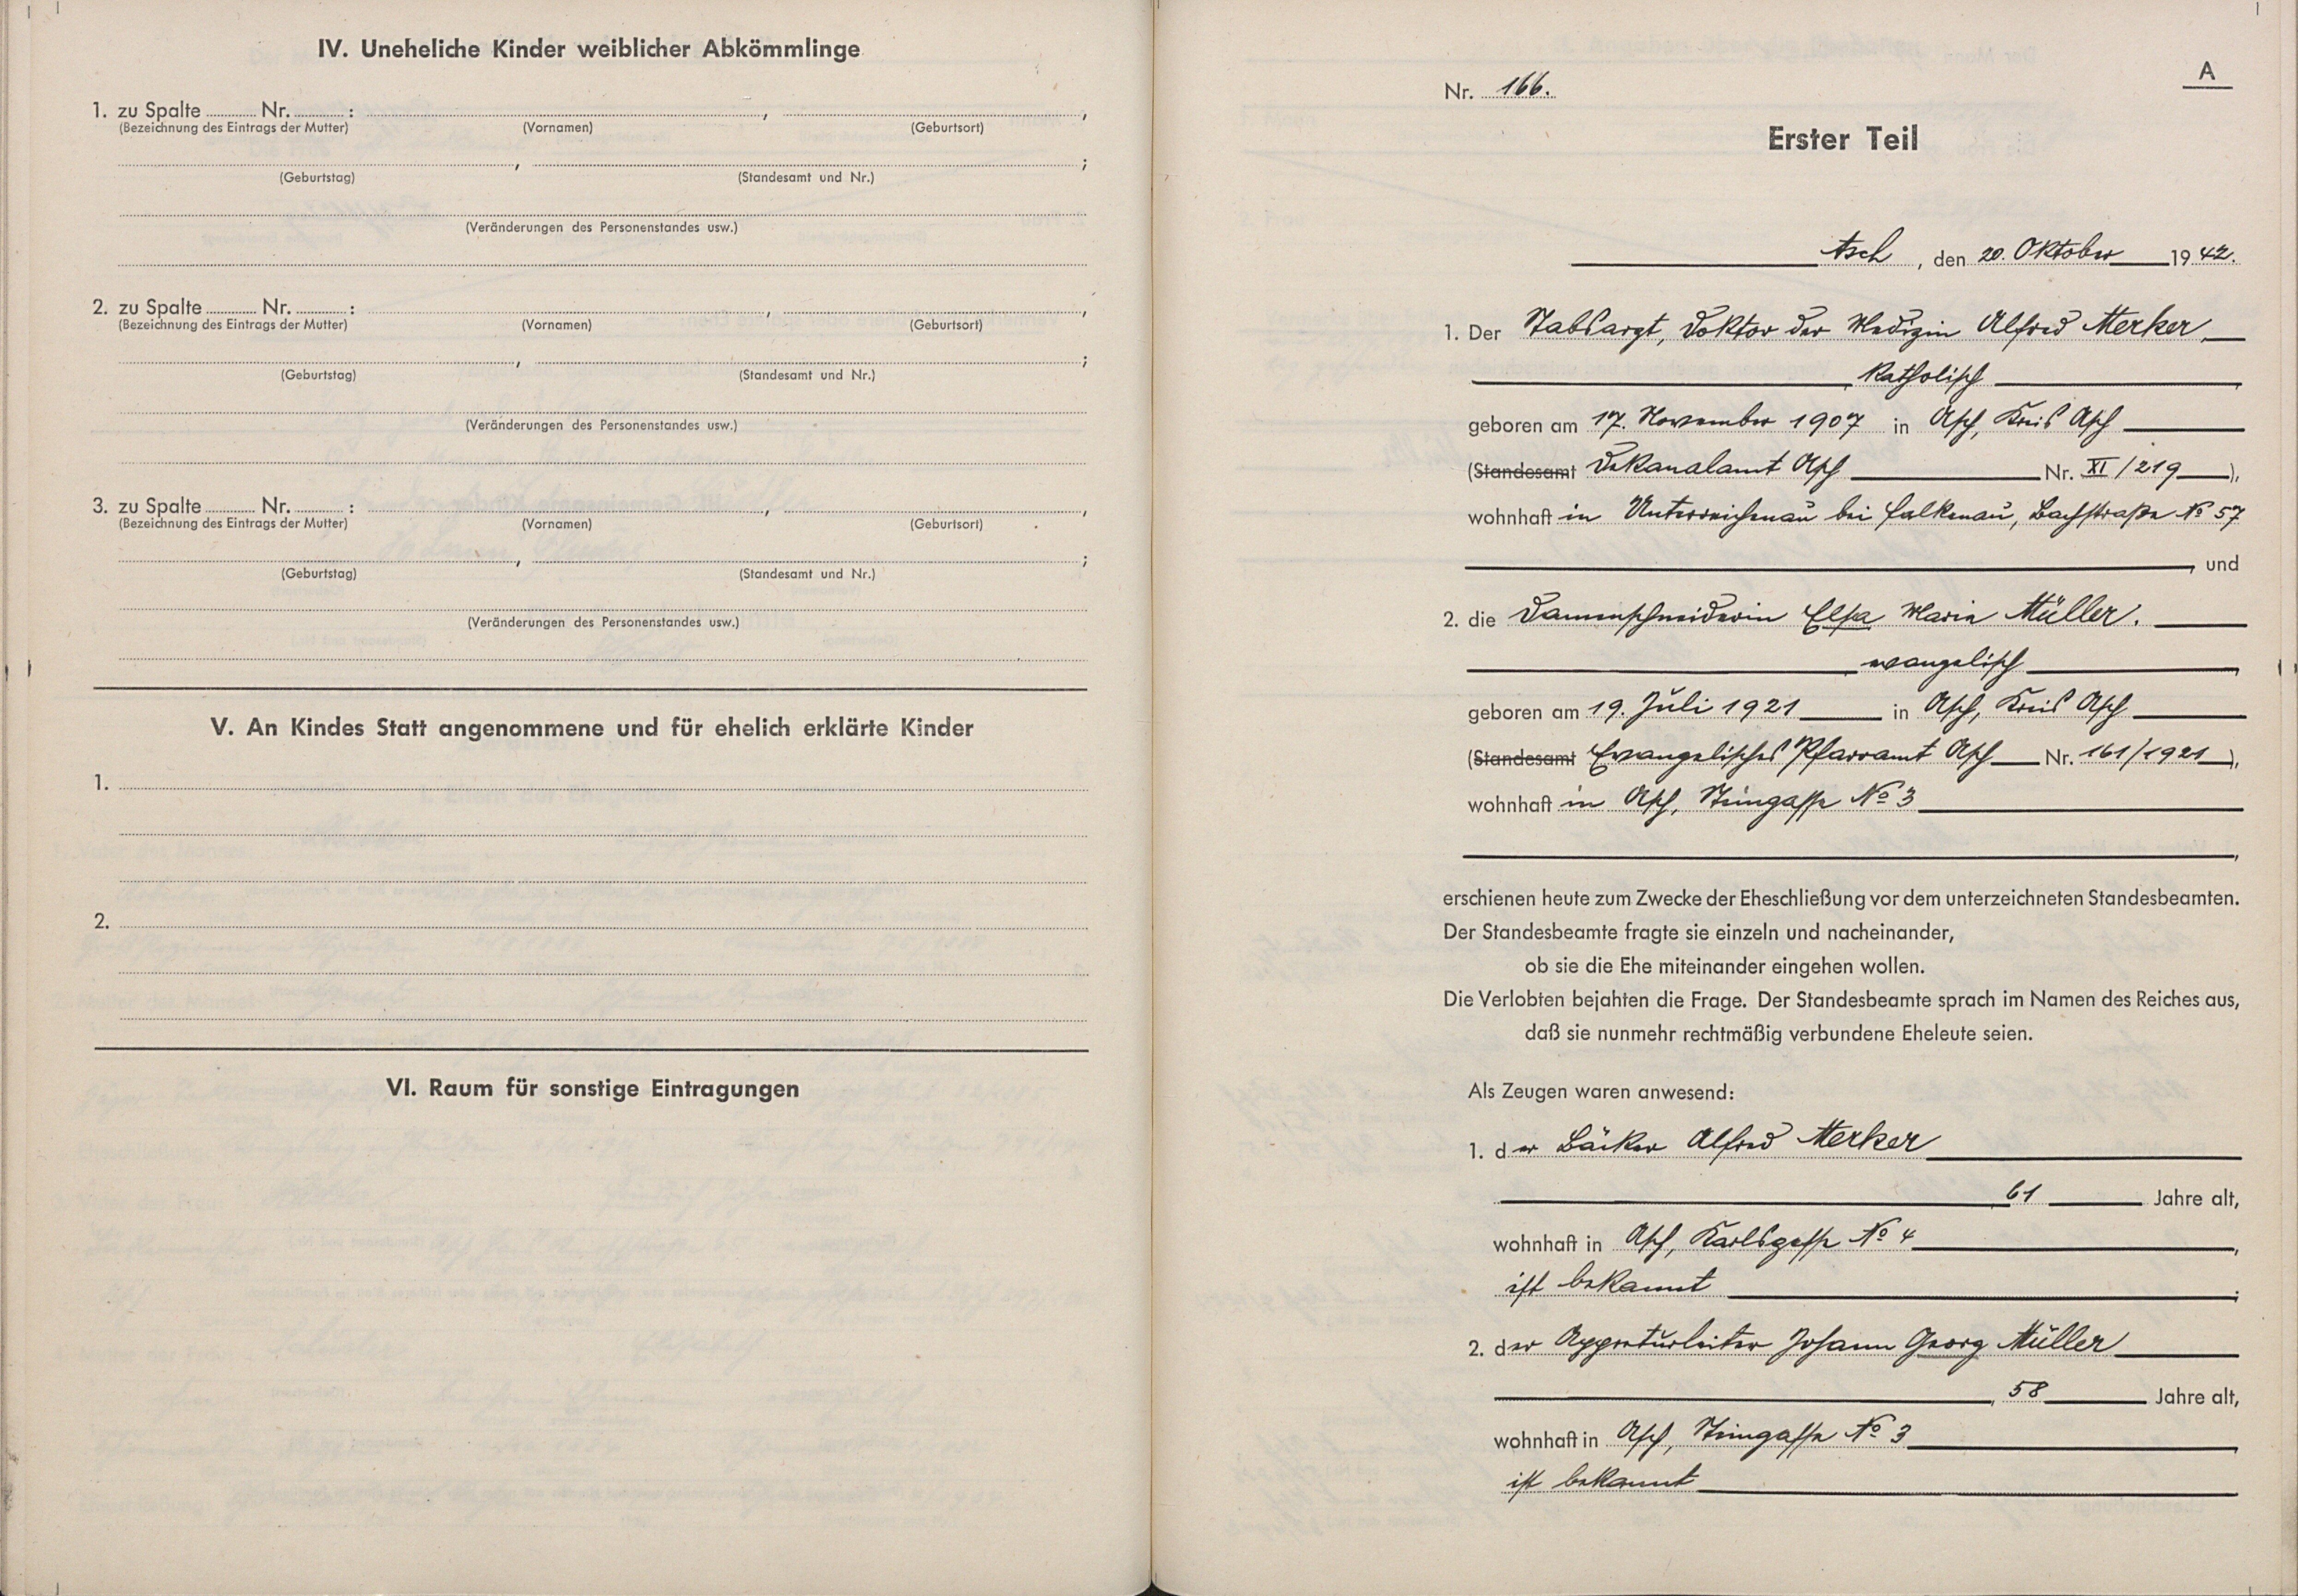 IV. Uneheliche Kinder weiblicher Abkömmlinge
1. zu Spalte ........ Nr. ........ :
(Bezeichnung des Eintrags der Mutter) (Vornamen) , (Geburtsort) ,
(Geburtstag) , (Standesamt und Nr.) ;
(Veränderungen des Personenstandes usw.)
2. zu Spalte ........ Nr. ........ :
(Bezeichnung des Eintrags der Mutter) (Vornamen) , (Geburtsort) ,
(Geburtstag) , (Standesamt und Nr.) ;
(Veränderungen des Personenstandes usw.)
3. zu Spalte ........ Nr. ........ :
(Bezeichnung des Eintrags der Mutter) (Vornamen) , (Geburtsort) ,
(Geburtstag) , (Standesamt und Nr.) ;
(Veränderungen des Personenstandes usw.)
V. An Kindes Statt angenommene und für ehelich erklärte Kinder
1.
2.
VI. Raum für sonstige Eintragungen
A
Nr. 166.
Erster Teil
Asch, den 20. Oktober 1942.
1. Der Stabsarzt, Doktor der Medizin Alfred Merker,
katholisch,
geboren am 17. November 1907 in Asch, Kreis Asch
(Standesamt Dekanalamt Asch Nr. XI/219),
wohnhaft in Unterreichenau bei Falkenau, Bachstraße No 57
, und
2. die Damenschneiderin Elsa Maria Müller.
evangelisch,
geboren am 19. Juli 1921 in Asch, Kreis Asch
(Standesamt Evangelisches Pfarramt Asch Nr. 161/1921),
wohnhaft in Asch, Steingasse No 3
,
erschienen heute zum Zwecke der Eheschließung vor dem unterzeichneten Standesbeamten.
Der Standesbeamte fragte sie einzeln und nacheinander,
ob sie die Ehe miteinander eingehen wollen.
Die Verlobten bejahten die Frage. Der Standesbeamte sprach im Namen des Reiches aus,
daß sie nunmehr rechtmäßig verbundene Eheleute seien.
Als Zeugen waren anwesend:
1. der Bäcker Alfred Merker
61 Jahre alt,
wohnhaft in Asch, Karlsgasse No 4,
ist bekannt;
2. der Appreturleiter Johann Georg Müller
, 58 Jahre alt,
wohnhaft in Asch, Steingasse No 3,
ist bekannt